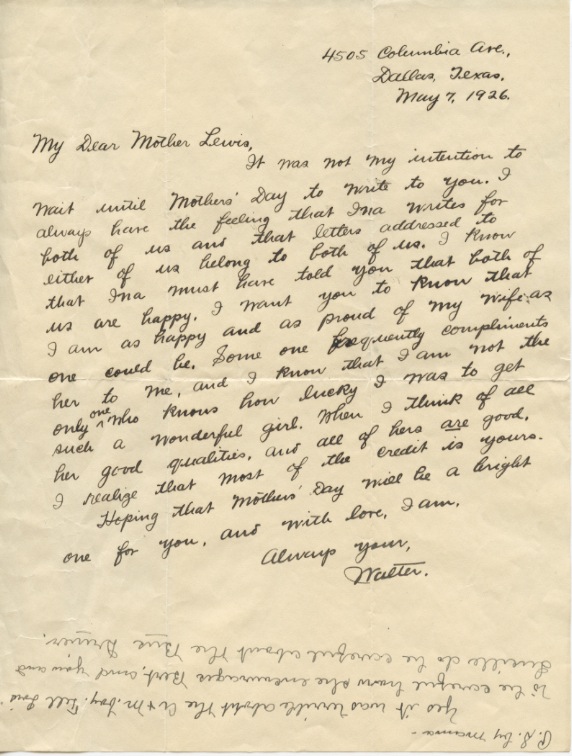 4505 Columbia Ave.,
Dallas, Texas.
May 7, 1926.
My Dear Mother Lewis,
It was not my intention to
wait until Mothers' Day to write to you. I
always have the feeling that Ina writes for
both of us and that letters addressed to
either of us belong to both of us. I know
that Ina must have told you that both of
us are happy. I want you to know that
I am as happy and as proud of my wife as
one could be. Some one frequently compliments
her to me, and I know that I am not the
only one who knows how lucky I was to get
such a wonderful girl. When I think of all
her good qualities, and all of hers are good,
I realize that most of the credit is yours.
Hoping that Mothers' Day will be a bright
one for you, and with love, I am,
Always your,
Walter.
P.S. by Mama -
Yes it was terrible about the A & M. boy. Tell
to be careful how she encourages Bert. and you and
Lucille do be careful about the